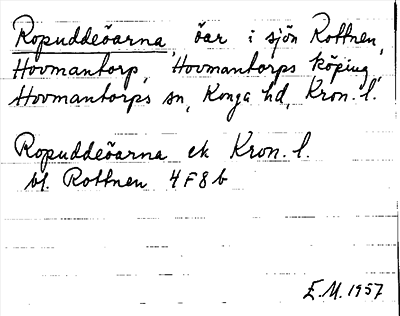 Ropuddeöarna, öar i sjön Rottnen,
Hovmantorp, Hovmantorps köping,
Hovmantorps sn, Konga hd, Kron. l.
Ropuddeöarna ek Kron. l.
bl. Rottnen 4F8b
E.M. 1957